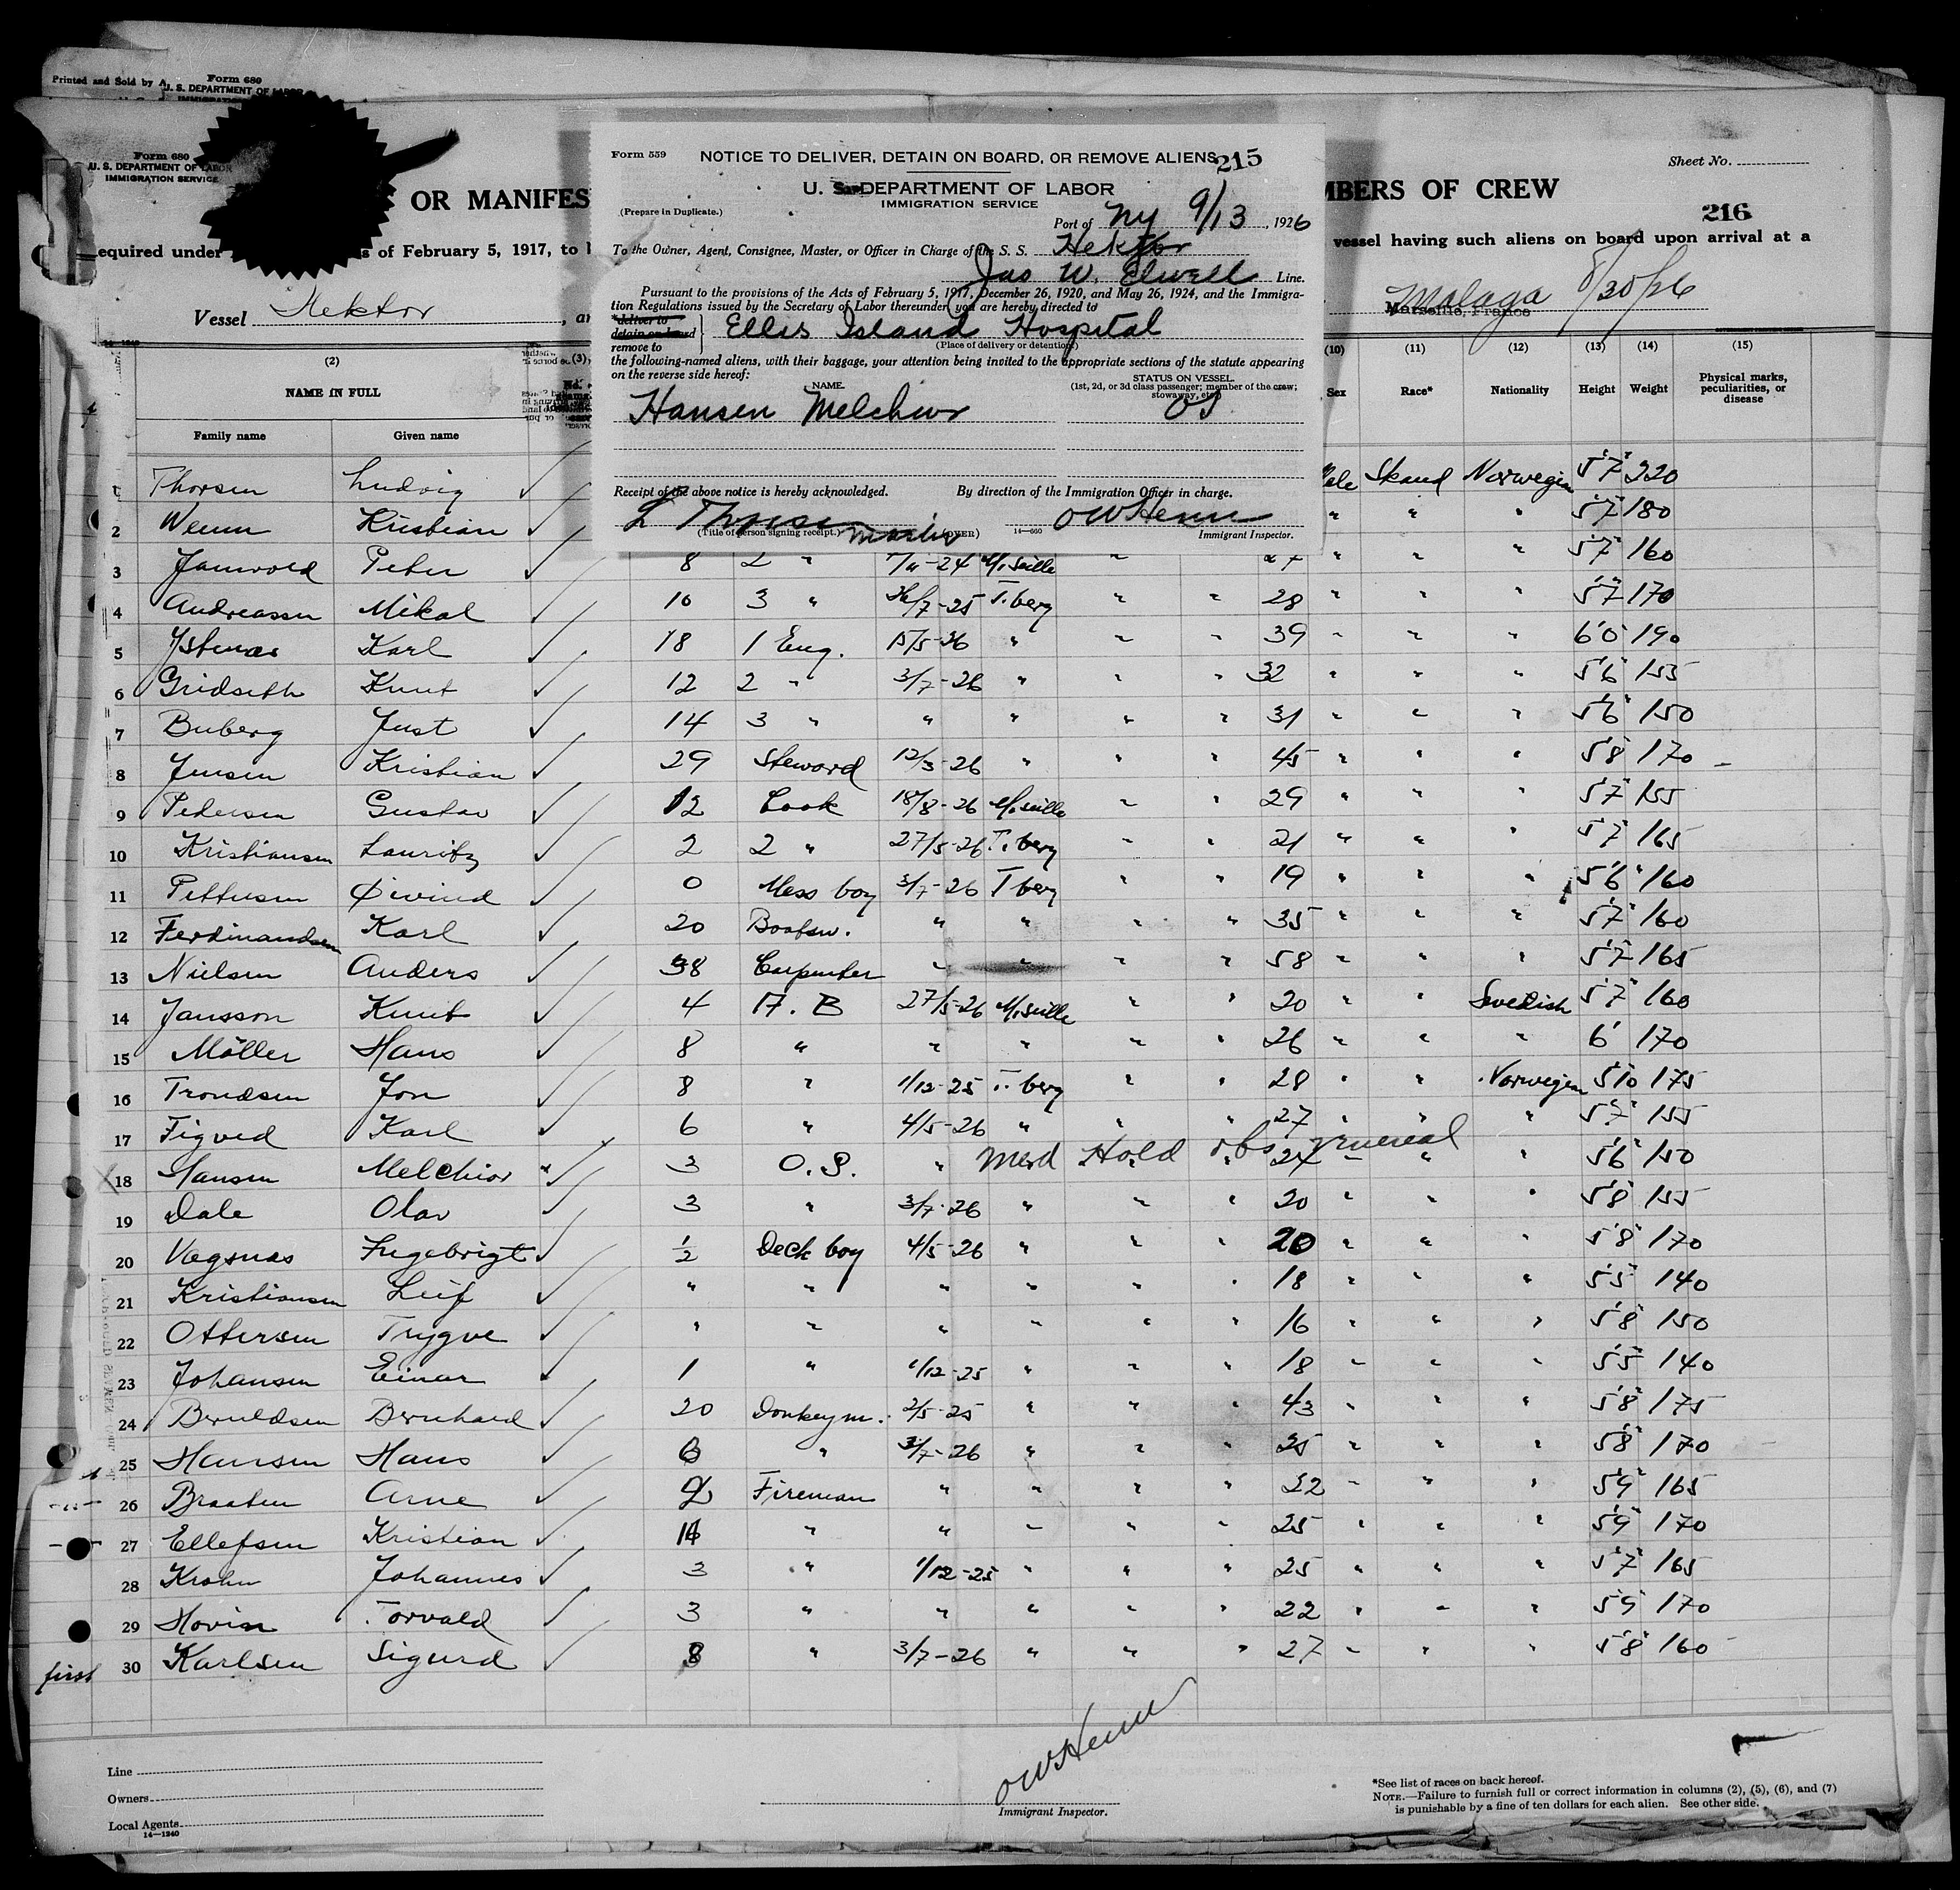 Printed and Sold by A.
Form 680
U. S. DEPARTMENT OF LABOR
Form 680
U. S. DEPARTMENT OF LABOR
IMMIGRATION SERVICE
OR MANIFES
MBERS OF CREW
Sheet No.
216
equired under
s of February 5, 1917, to
vessel having such aliens on board upon arrival at a
Vessel Hektor
Malaga 8/30/26
Marseille, France
Form 559 NOTICE TO DELIVER, DETAIN ON BOARD, OR REMOVE ALIENS 215
U. S. DEPARTMENT OF LABOR
IMMIGRATION SERVICE
(Prepare in Duplicate.)
Port of NY 9/13, 1926
To the Owner, Agent, Consignee, Master, or Officer in Charge of the S. S. Hektor
Jas W. Elwell Line.
Pursuant to the provisions of the Acts of February 5, 1917, December 26, 1920, and May 26, 1924, and the Immigra-
tion Regulations issued by the Secretary of Labor thereunder, you are hereby directed to
*deliver to
detain on board
remove to
Ellis Island Hospital
(Place of delivery or detention)
the following-named aliens, with their baggage, your attention being invited to the appropriate sections of the statute appearing
on the reverse side hereof:
NAME. STATUS ON VESSEL.
(1st, 2d, or 3d class passenger; member of the crew; stowaway, etc.)
Hansen Melchior OS
Receipt of the above notice is hereby acknowledged. By direction of the Immigration Officer in charge.
L Thorsen master OWHenn
(Title of person signing receipt.) (OVER) 14—660 Immigrant Inspector.
(2) (3) (10) (11) (12) (13) (14) (15)
NAME IN FULL Sex Race* Nationality Height Weight Physical marks, peculiarities, or disease
Family name Given name
1 Thorsen Ludvig Male Skand Norwegian 5'7" 220
2 Wenm Kristian " " " 5'7" 180
3 Peter 8 2 " 24 M.seille " " " " 5'7" 160
4 Andreassen Mikal 10 3 " 26/7-25 T.berg " " 28 " " " 5'7" 170
5 Karl 18 1 Eng. 15/5-26 " " " 39 " " " 6'0 190
6 Gridseth Knut 12 2 " 3/7-26 " " " 32 " " " 5'6" 155
7 Buberg Just 14 3 " " " " " 31 " " " 5'6" 150
8 Jensen Kristian 29 Steward 12/3-26 " " " 45 " " " 5'8 170
9 Pedersen Gustav 12 Cook 18/8-26 M.seille " " 29 " " " 5'7" 155
10 Kristiansen Lauritz 2 2 " 27/5-26 T.berg " " 21 " " " 5'7" 165
11 Pettersen Øivind 0 Mess boy 3/7-26 T berg " " 19 " " " 5'6" 160
12 Ferdinandsen Karl 20 Boatsw. " " " " 35 " " " 5'7" 160
13 Nielsen Anders 38 Carpenter " " " " 58 " " " 5'7" 165
14 Jansson Knut 4 A. B 27/5-26 M.seille " " 20 " " Swedish 5'7" 160
15 Möller Hans 8 " " " " " 26 " " " 6' 170
16 Trondsen Jon 8 " 1/12-25 T.berg " " 28 " " Norwegian 5'10 175
17 Figved Karl 6 " 4/5-26 " " " 27 " " " 5'7" 155
Med Hold obs venereal
18 Hansen Melchior 3 O.S. " " " 24 " " " 5'6" 150
19 Dale Olav 3 " 3/7-26 " " " 20 " " " 5'8" 155
20 Vagsnas Ingebrigt 1/2 Deck boy 4/5-26 " " " 20 " " " 5'8" 170
21 Kristiansen Leif " " " " " " 18 " " " 5'5" 140
22 Ottersen Trygve " " " " " " 16 " " " 5'8" 150
23 Johansen Einar 1 " 1/12-25 " " " 18 " " " 5'5" 140
24 Beruldsen Bernhard 20 Donkeym. 2/5-25 " " " 43 " " " 5'8" 175
25 Hansen Hans 6 " 3/7-26 " " " 25 " " " 5'8" 170
26 Braaten Arne 2 Fireman " " " " 22 " " " 5'9" 165
27 Ellefsen Kristian " " " " " 25 " " " 5'9" 170
28 Krohn Johannes 3 " 1/12-25 " " " 25 " " " 5'7" 165
29 Hovin Torvald 3 " " " " " 22 " " " 5'9 170
first 30 Karlsen Sigurd 8 " 3/7-26 " " " 27 " " " 5'8" 160
Line
Owners
Local Agents
14—1240
OWHenn
Immigrant Inspector.
*See list of races on back hereof.
NOTE.—Failure to furnish full or correct information in columns (2), (5), (6), and (7)
is punishable by a fine of ten dollars for each alien. See other side.